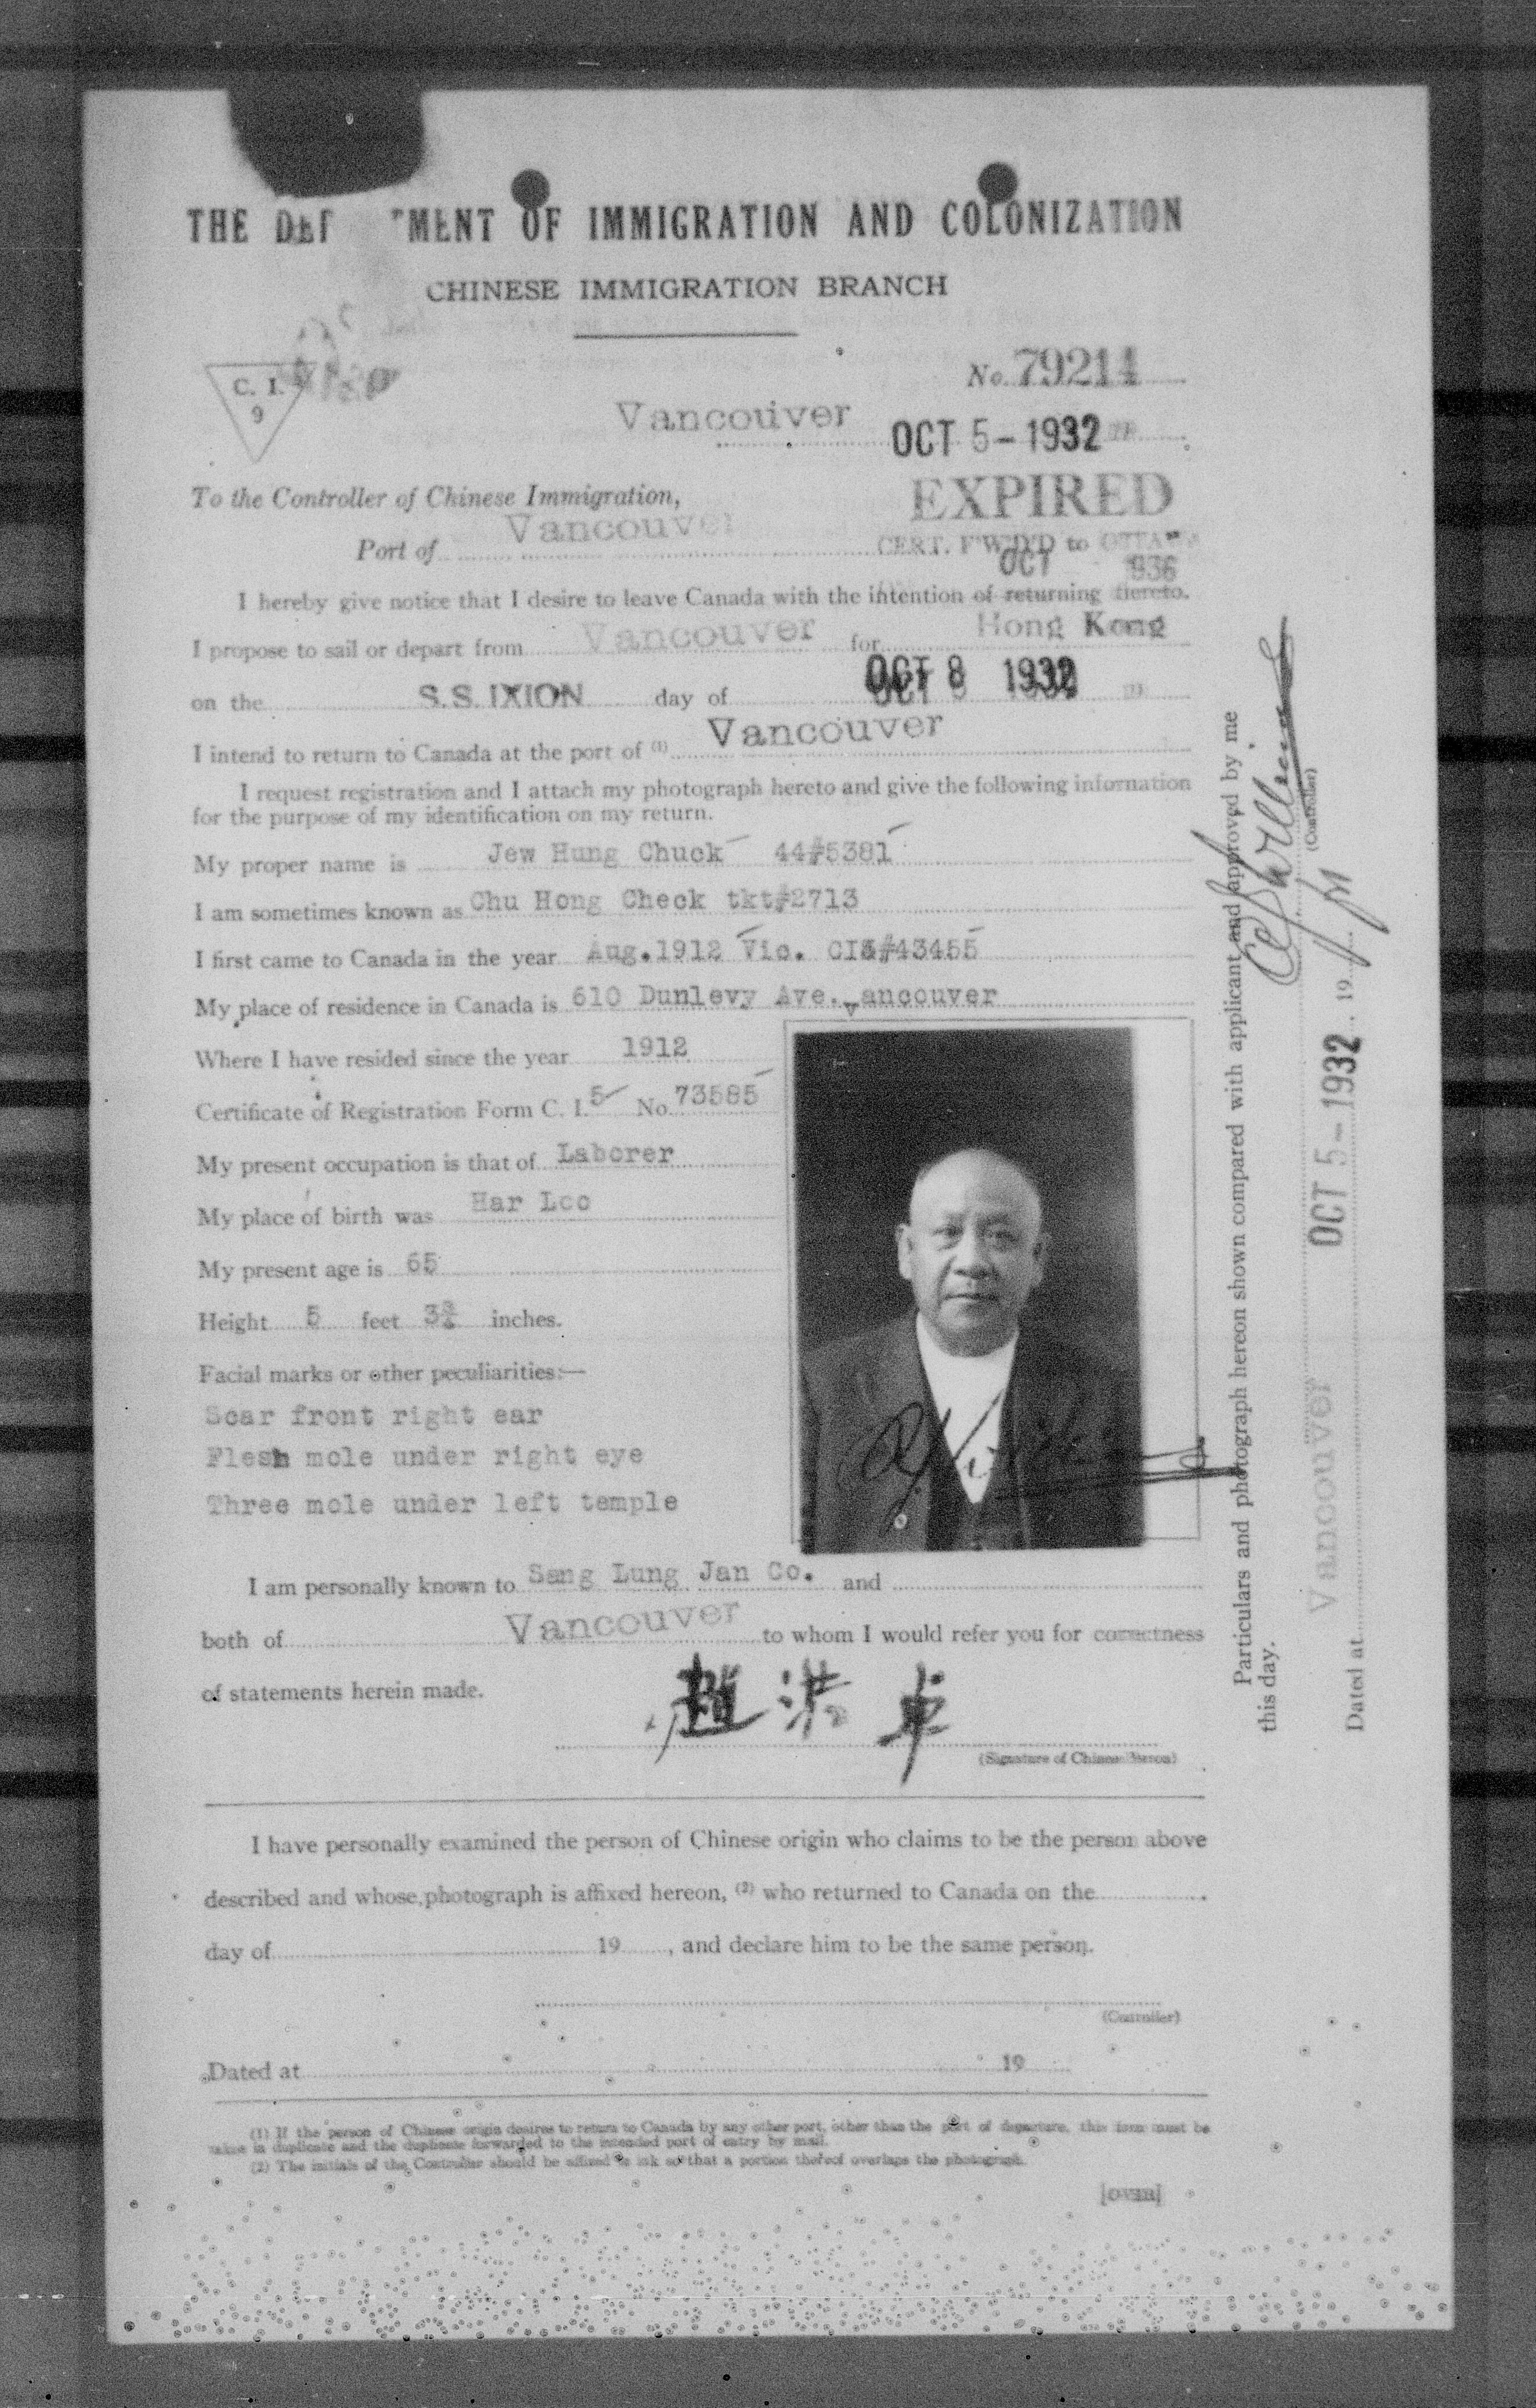 THE DEP TMENT OF IMMIGRATION AND COLONIZATION
CHINESE IMMIGRATION BRANCH
C. I.
9
No. 79214
Vancouver OCT 5 - 1932
To the Controller of Chinese Immigration,
EXPIRED
Port of Vancouver
CERT. F'W'D'D to OTTAWA
OCT 1936
I hereby give notice that I desire to leave Canada with the intention of returning hereto.
I propose to sail or depart from Vancouver for Hong Kong
on the S.S. IXION day of OCT 8 1932
I intend to return to Canada at the port of (1) Vancouver
I request registration and I attach my photograph hereto and give the following information
for the purpose of my identification on my return.
My proper name is Jew Hung Chuck 44#5381
I am sometimes known as Chu Hong Check tkt#2713
I first came to Canada in the year Aug.1912 Vic. CI5#43455
My place of residence in Canada is 610 Dunlevy Ave. Vancouver
Where I have resided since the year 1912
Certificate of Registration Form C. I. 5 No. 73585
My present occupation is that of Laborer
My place of birth was Har Loo
My present age is 65
Height 5 feet 3¾ inches.
Facial marks or other peculiarities:—
Scar front right ear
Flesh mole under right eye
Three mole under left temple
I am personally known to Sang Lung Jan Co. and
both of Vancouver to whom I would refer you for correctness
of statements herein made.
趙洪卓
(Signature of Chinese Person)
I have personally examined the person of Chinese origin who claims to be the person above
described and whose photograph is affixed hereon, (2) who returned to Canada on the
day of 19 , and declare him to be the same person.
(Controller)
Dated at 19
(1) If the person of Chinese origin desires to return to Canada by any other port, other than the port of departure, this form must be
taken in duplicate and the duplicate forwarded to the intended port of entry by mail.
(2) The initials of the Controller should be affixed in ink so that a portion thereof overlaps the photograph.
[OVER]
Particulars and photograph hereon shown compared with applicant and approved by me
this day.
(Controller)
Dated at Vancouver OCT 5 - 1932 19